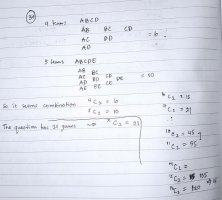 30
4 teams ABCD
AB BC CD
AC BD = 6
AD
5 teams ABCDE
AB BC
AC BD CD DE = 10
AD BE CE
AE
So it seems combination ⁴C₂ = 6
⁵C₂ = 10
The question has 21 games → ˣC₂ = 21
⁶C₂ = 15
⁷C₂ = 21
¹⁰C₂ = 45
¹¹C₂ = 55
¹⁵C₂ = 105
¹⁶C₂ = 120